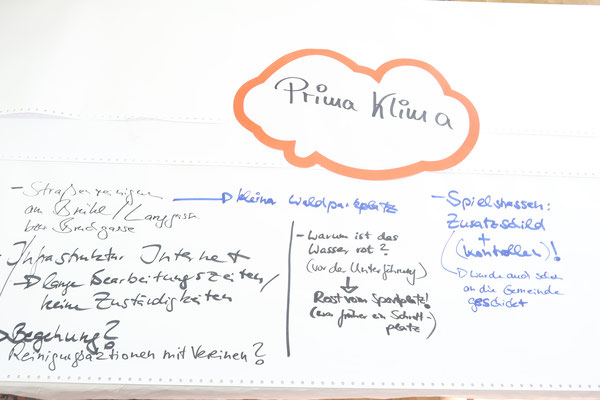 Prima Klima
- Straßenreinigen
am Brühl / Langgasse
bzw. Backgasse
→ kleiner Waldparkplatz
- Infrastruktur Internet
→ lange Bearbeitungszeiten /
keine Zuständigkeiten
→ Begehung?
Reinigungsaktionen mit Vereinen?
- Warum ist das
Wasser rot?
(vor der Unterführung)
↓
Rost vom Sportplatz!
(war früher ein Schrott-
platz)
- Spielstrassen:
Zusatzschild
+
(kontrollen)!
→ wurde auch schon
an die Gemeinde
geschickt